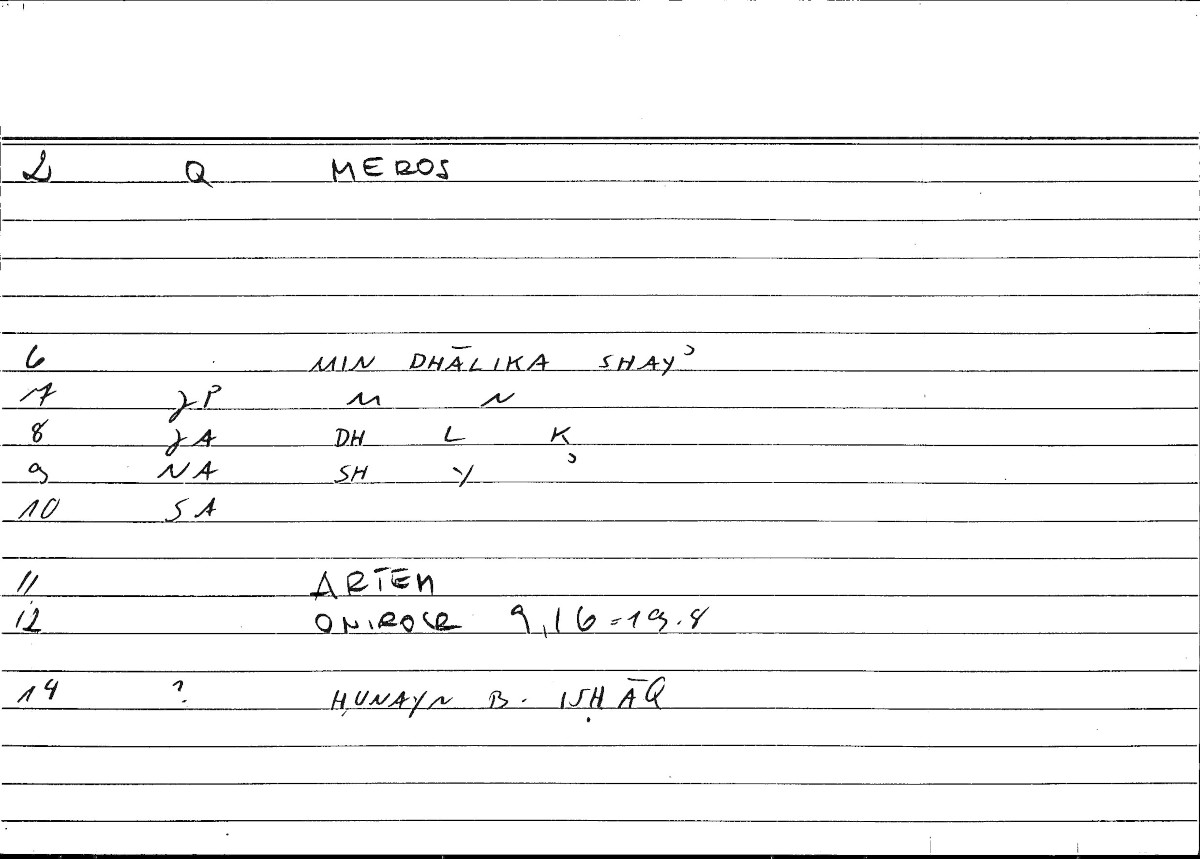 2 Q MEROS
6 MIN DHĀLIKA SHAYʾ
7 JP M N
8 JA DH L K
9 NA SH Y ʾ
10 SA
11 ARTEM
12 ONIROCR 9,16=19.8
14 ? ḤUNAYN B. ISḤĀQ